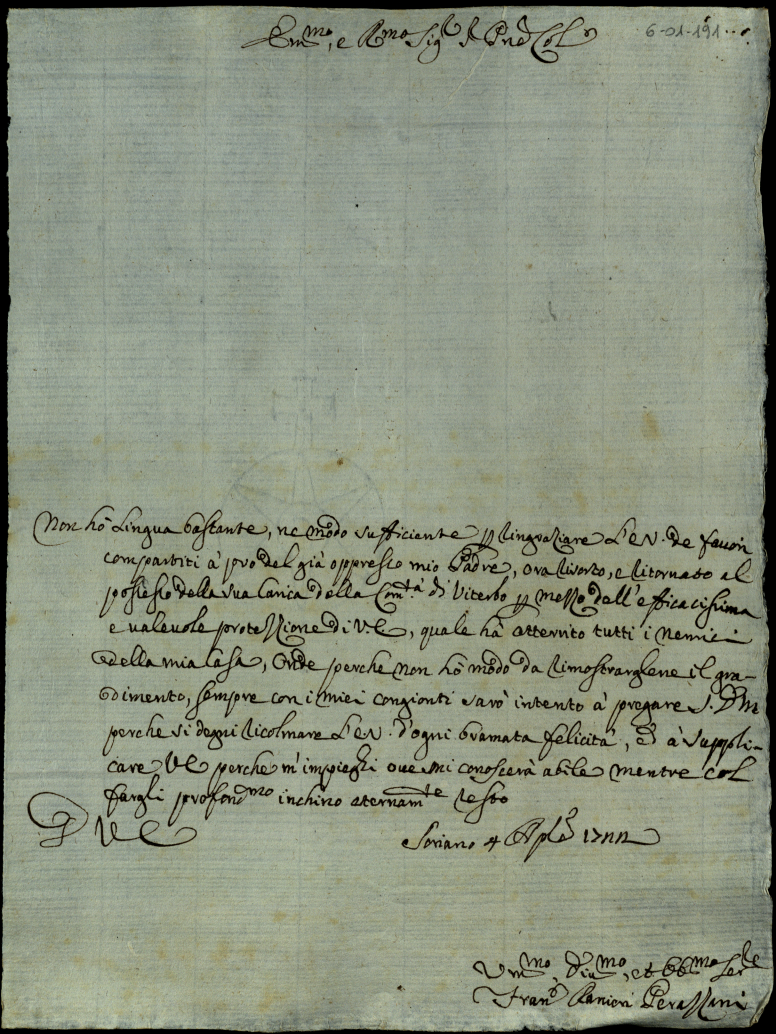 Em.mo, e R.mo Sig.r P.rone Col.mo
6-01-191
Non hò Lingua bastante, ne modo sufficiente p ringraziare L'E.V. de favori
compartiti à pro del già oppresso mio Padre, ora risorto, e ritornato al
possesso della sua Carica della Com.tà di Viterbo p mezzo dell'efficacissima
e valevole protezzione di V.E., quale hà atterrito tutti i nemici
della mia Casa, Onde perche non hò modo da rimostrarglene il gra-
dimento, sempre con i miei congionti sarò intento à pregare S.D.M.
perche si degni ricolmare L'E.V. d'ogni bramata felicità, ed à suppli-
care V.E. perche m'impieghi ove mi conoscerà abile mentre col
fargli profond.mo inchino aternam.te resto
D V.E.
Soriano 4 Aple 1722
Um.mo, Div.mo, et Obb.mo Ser.re
Fran.o Ranieri Perazzani